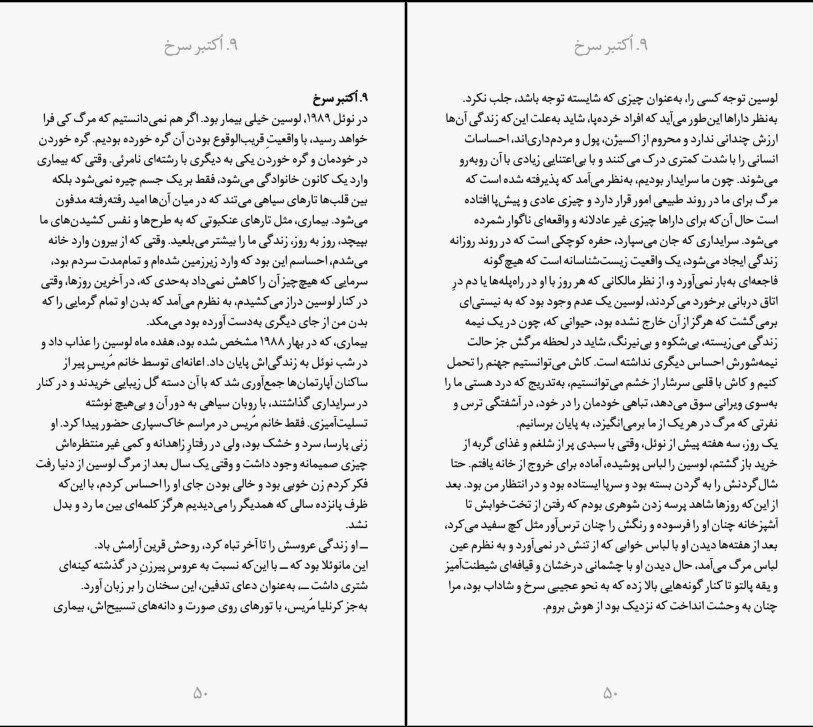 ۹. اُکتبر سرخ
۹. اُکتبر سرخ
در نوئل ۱۹۸۹، لوسین خیلی بیمار بود. اگر هم نمی‌دانستیم که مرگ کی فرا
خواهد رسید، با واقعیتِ قریب‌الوقوع بودن آن گره خورده بودیم. گره خوردن
در خودمان و گره خوردن یکی به دیگری با رشته‌ای نامرئی. وقتی که بیماری
وارد یک کانون خانوادگی می‌شود، فقط بر یک جسم چیره نمی‌شود بلکه
بین قلب‌ها تارهای سیاهی می‌تند که در میان آن‌ها امید رفته‌رفته مدفون
می‌شود. بیماری، مثل تارهای عنکبوتی که به طرح‌ها و نفس کشیدن‌های ما
بپیچد، روز به روز، زندگی ما را بیشتر می‌بلعید. وقتی که از بیرون وارد خانه
می‌شدم، احساسم این بود که وارد زیرزمین شده‌ام و تمام‌مدت سردم بود،
سرمایی که هیچ‌چیز آن را کاهش نمی‌داد به‌حدی که، در آخرین روزها، وقتی
در کنار لوسین دراز می‌کشیدم، به نظرم می‌آمد که بدن او تمام گرمایی را که
بدن من از جای دیگری به‌دست آورده بود می‌مکد.
بیماری، که در بهار ۱۹۸۸ مشخص شده بود، هفده ماه لوسین را عذاب داد و
در شب نوئل به زندگی‌اش پایان داد. اعانه‌ای توسط خانم مُریسِ پیر از
ساکنان آپارتمان‌ها جمع‌آوری شد که با آن دسته گل زیبایی خریدند و در کنار
در سرایداری گذاشتند، با روبان سیاهی به دور آن و بی‌هیچ نوشته
تسلیت‌آمیزی. فقط خانم مُریس در مراسم خاک‌سپاری حضور پیدا کرد. او
زنی پارسا، سرد و خشک بود، ولی در رفتارِ زاهدانه و کمی غیر منتظره‌اش
چیزی صمیمانه وجود داشت و وقتی یک سال بعد از مرگ لوسین از دنیا رفت
فکر کردم زن خوبی بود و خالی بودن جای او را احساس کردم، با این‌که
ظرف پانزده سالی که همدیگر را می‌دیدیم هرگز کلمه‌ای بین ما رد و بدل
نشد.
ــ او زندگی عروسش را تا آخر تباه کرد، روحش قرین آرامش باد.
این مانوئلا بود که ــ با این‌که نسبت به عروسِ پیرزن در گذشته کینه‌ای
شتری داشت ــ، به‌عنوان دعای تدفین، این سخنان را بر زبان آورد.
به‌جز کرنلیا مُریس، با تورهای روی صورت و دانه‌های تسبیح‌اش، بیماری
۵۰
۹. اُکتبر سرخ
لوسین توجه کسی را، به‌عنوان چیزی که شایسته توجه باشد، جلب نکرد.
به‌نظر داراها این‌طور می‌آید که افراد خرده‌پا، شاید به‌علت این‌که زندگی آن‌ها
ارزش چندانی ندارد و محروم از اکسیژن، پول و مردم‌داری‌اند، احساسات
انسانی را با شدت کمتری درک می‌کنند و با بی‌اعتنایی زیادی با آن روبه‌رو
می‌شوند. چون ما سرایدار بودیم، به‌نظر می‌آمد که پذیرفته شده است که
مرگ برای ما در روند طبیعی امور قرار دارد و چیزی عادی و پیش‌پا افتاده
است حال آن‌که برای داراها چیزی غیر عادلانه و واقعه‌ای ناگوار شمرده
می‌شود. سرایداری که جان می‌سپارد، حفره کوچکی است که در روند روزانه
زندگی ایجاد می‌شود، یک واقعیت زیست‌شناسانه است که هیچ‌گونه
فاجعه‌ای به‌بار نمی‌آورد و، از نظر مالکانی که هر روز با او در راه‌پله‌ها یا دم درِ
اتاق دربانی برخورد می‌کردند، لوسین یک عدم وجود بود که به نیستی‌ای
برمی‌گشت که هرگز از آن خارج نشده بود، حیوانی که، چون در یک نیمه
زندگی می‌زیسته، بی‌شکوه و بی‌نیرنگ، شاید در لحظه مرگش جز حالت
نیمه‌شورش احساس دیگری نداشته است. کاش می‌توانستیم جهنم را تحمل
کنیم و کاش با قلبی سرشار از خشم می‌توانستیم، به‌تدریج که درد هستی ما را
به‌سوی ویرانی سوق می‌دهد، تباهی خودمان را در خود، در آشفتگی ترس و
نفرتی که مرگ در هر یک از ما برمی‌انگیزد، به پایان برسانیم.
یک روز، سه هفته پیش از نوئل، وقتی با سبدی پر از شلغم و غذای گربه از
خرید باز گشتم، لوسین را لباس پوشیده، آماده برای خروج از خانه یافتم. حتا
شال‌گردنش را به گردن بسته بود و سرپا ایستاده بود و در انتظار من بود. بعد
از این‌که روزها شاهد پرسه زدن شوهری بودم که رفتن از تخت‌خوابش تا
آشپزخانه چنان او را فرسوده و رنگش را چنان ترس‌آور مثل گچ سفید می‌کرد،
بعد از هفته‌ها دیدن او با لباس خوابی که از تنش در نمی‌آورد و به نظرم عین
لباس مرگ می‌آمد، حال دیدن او با چشمانی درخشان و قیافه‌ای شیطنت‌آمیز
و یقه پالتو تا کنار گونه‌هایی بالا زده که به نحو عجیبی سرخ و شاداب بود، مرا
چنان به وحشت انداخت که نزدیک بود از هوش بروم.
۵۰